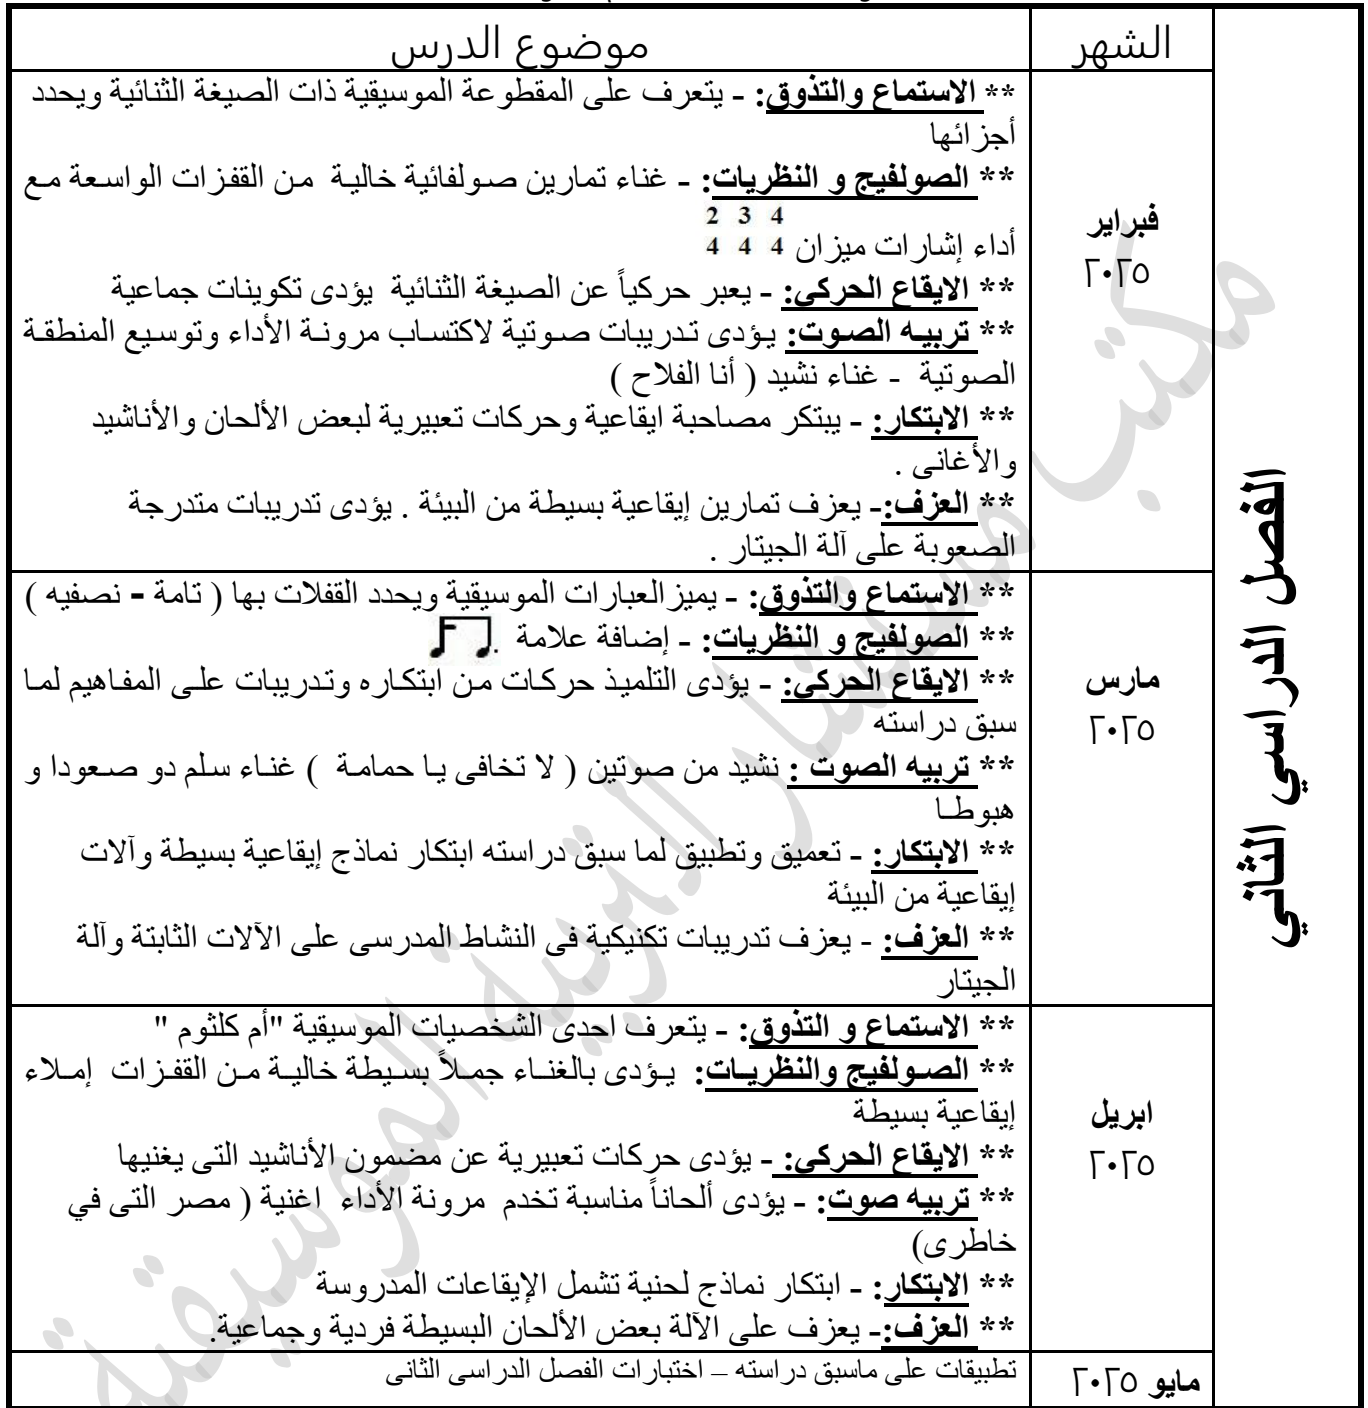 الشهر
موضوع الدرس
الفصل الدراسي الثاني
فبراير
٢٠٢٥
** الاستماع والتذوق: - يتعرف على المقطوعة الموسيقية ذات الصيغة الثنائية ويحدد
أجزائها
** الصولفيج و النظريات: - غناء تمارين صولفائية خالية من القفزات الواسعة مع
2 3 4
أداء إشارات ميزان 4 4 4
** الايقاع الحركي: - يعبر حركياً عن الصيغة الثنائية يؤدى تكوينات جماعية
** تربيه الصوت: يؤدى تدريبات صوتية لاكتساب مرونة الأداء وتوسيع المنطقة
الصوتية - غناء نشيد ( أنا الفلاح )
** الابتكار: - يبتكر مصاحبة ايقاعية وحركات تعبيرية لبعض الألحان والأناشيد
والأغانى .
** العزف:- يعزف تمارين إيقاعية بسيطة من البيئة . يؤدى تدريبات متدرجة
الصعوبة على آلة الجيتار .
مارس
٢٠٢٥
** الاستماع والتذوق: - يميز العبارات الموسيقية ويحدد القفلات بها ( تامة - نصفيه )
** الصولفيج و النظريات: - إضافة علامة
** الايقاع الحركي: - يؤدى التلميذ حركات من ابتكاره وتدريبات على المفاهيم لما
سبق دراسته
** تربيه الصوت : نشيد من صوتين ( لا تخافى يا حمامة ) غناء سلم دو صعودا و
هبوطا
** الابتكار: - تعميق وتطبيق لما سبق دراسته ابتكار نماذج إيقاعية بسيطة وآلات
إيقاعية من البيئة
** العزف: - يعزف تدريبات تكنيكية فى النشاط المدرسى على الآلات الثابتة وآلة
الجيتار
ابريل
٢٠٢٥
** الاستماع و التذوق: - يتعرف احدى الشخصيات الموسيقية "أم كلثوم "
** الصولفيج والنظريات: يؤدى بالغناء جملاً بسيطة خالية من القفزات إملاء
إيقاعية بسيطة
** الايقاع الحركي: - يؤدى حركات تعبيرية عن مضمون الأناشيد التى يغنيها
** تربيه صوت: - يؤدى ألحاناً مناسبة تخدم مرونة الأداء اغنية ( مصر التى في
خاطرى)
** الابتكار: - ابتكار نماذج لحنية تشمل الإيقاعات المدروسة
** العزف:- يعزف على الآلة بعض الألحان البسيطة فردية وجماعية.
مايو ٢٠٢٥
تطبيقات على ماسبق دراسته – اختبارات الفصل الدراسى الثانى
مكتب مستشار التربية الموسيقية